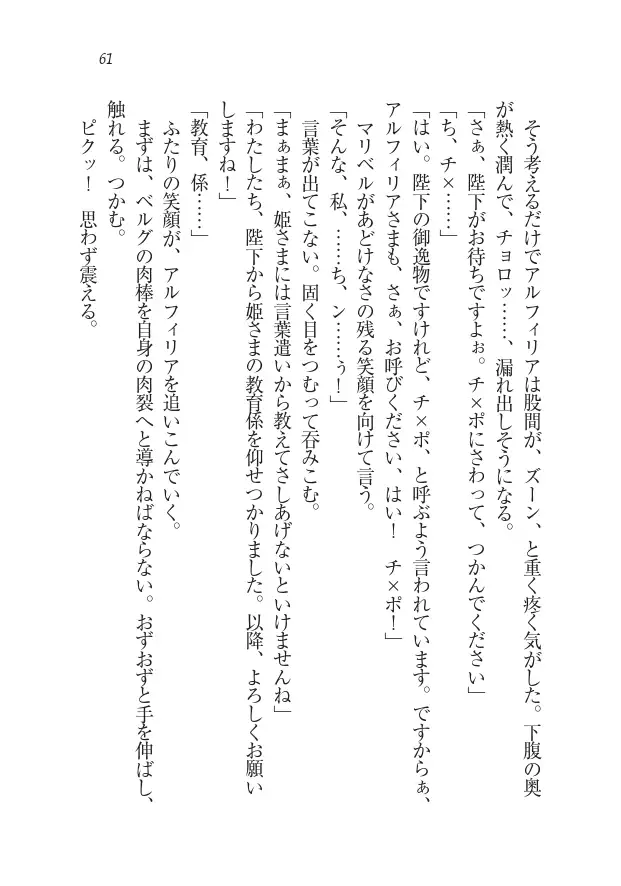 61
そう考えるだけでアルフィリアは股間が、ズーン、と重く疼く気がした。下腹の奥
が熱く潤んで、チョロッ……、漏れ出しそうになる。
「さぁ、陛下がお待ちですよぉ。チ×ポにさわって、つかんでください」
「ち、チ×……」
「はい。陛下の御逸物ですけれど、チ×ポ、と呼ぶよう言われています。ですからぁ、
アルフィリアさまも、さぁ、お呼びください、はい！　チ×ポ！」
マリベルがあどけなさの残る笑顔を向けて言う。
「そんな、私、……ち、ン……ぅ！」
言葉が出てこない。固く目をつむって呑みこむ。
「まぁまぁ、姫さまには言葉遣いから教えてさしあげないといけませんね」
「わたしたち、陛下から姫さまの教育係を仰せつかりました。以降、よろしくお願い
しますね！」
「教育、係……」
ふたりの笑顔が、アルフィリアを追いこんでいく。
まずは、ベルグの肉棒を自身の肉裂へと導かねばならない。おずおずと手を伸ばし、
触れる。つかむ。
ピクッ！　思わず震える。